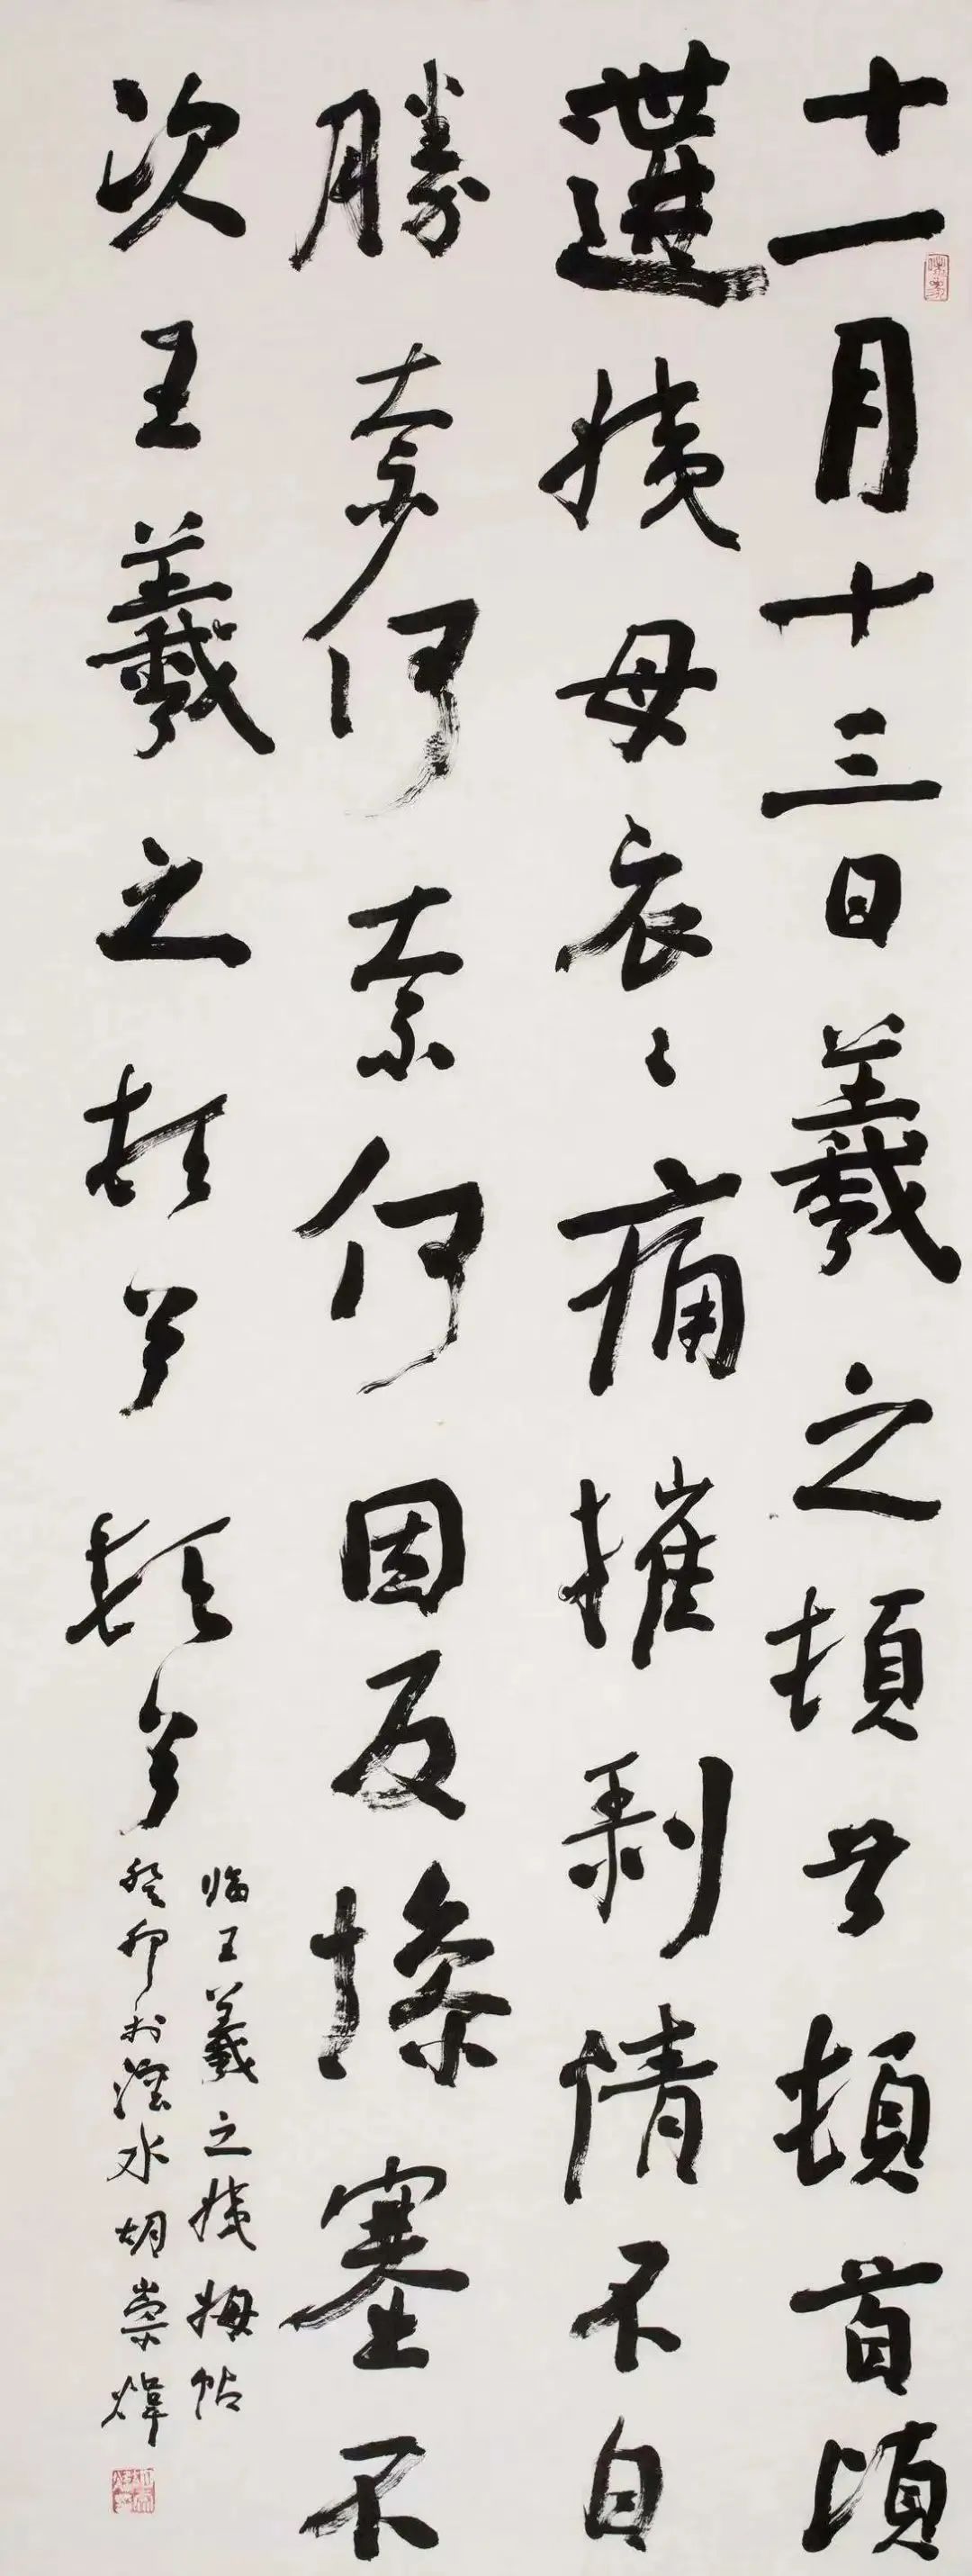 十一月十三日羲之頓首頓首頃
遘姨母哀〻痛摧剥情不自
勝奈何奈何因反惨塞不
次王羲之頓首頓首
臨王羲之姨姆帖
癸卯於水胡崇煒